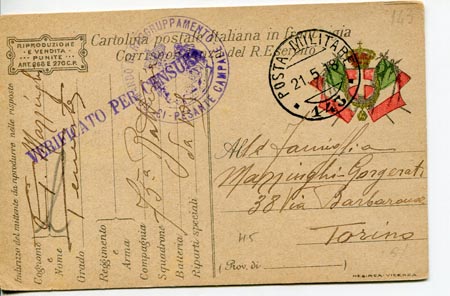 143
RIPRODUZIONE
E VENDITA
PUNITE
ART. 268 E 270 C.P.
Cartolina postale Italiana in franchigia
Corrispondenza del R. Esercito
RAGGRUPPAMENTO
PESANTE CAMPALE
VERIFICATO PER CENSURA
POSTA MILITARE
21.5.18
143
Indirizzo del mittente da riprodurre nelle risposte
Cognome
e
Nome
Grado
Reggimento
o
Arma
Compagnia
Squadrone
Batteria
Riparti speciali
Alla Famiglia
Mazzinghi-Gorgerati
38 Via Barbaroux
Torino
(Prov. di )